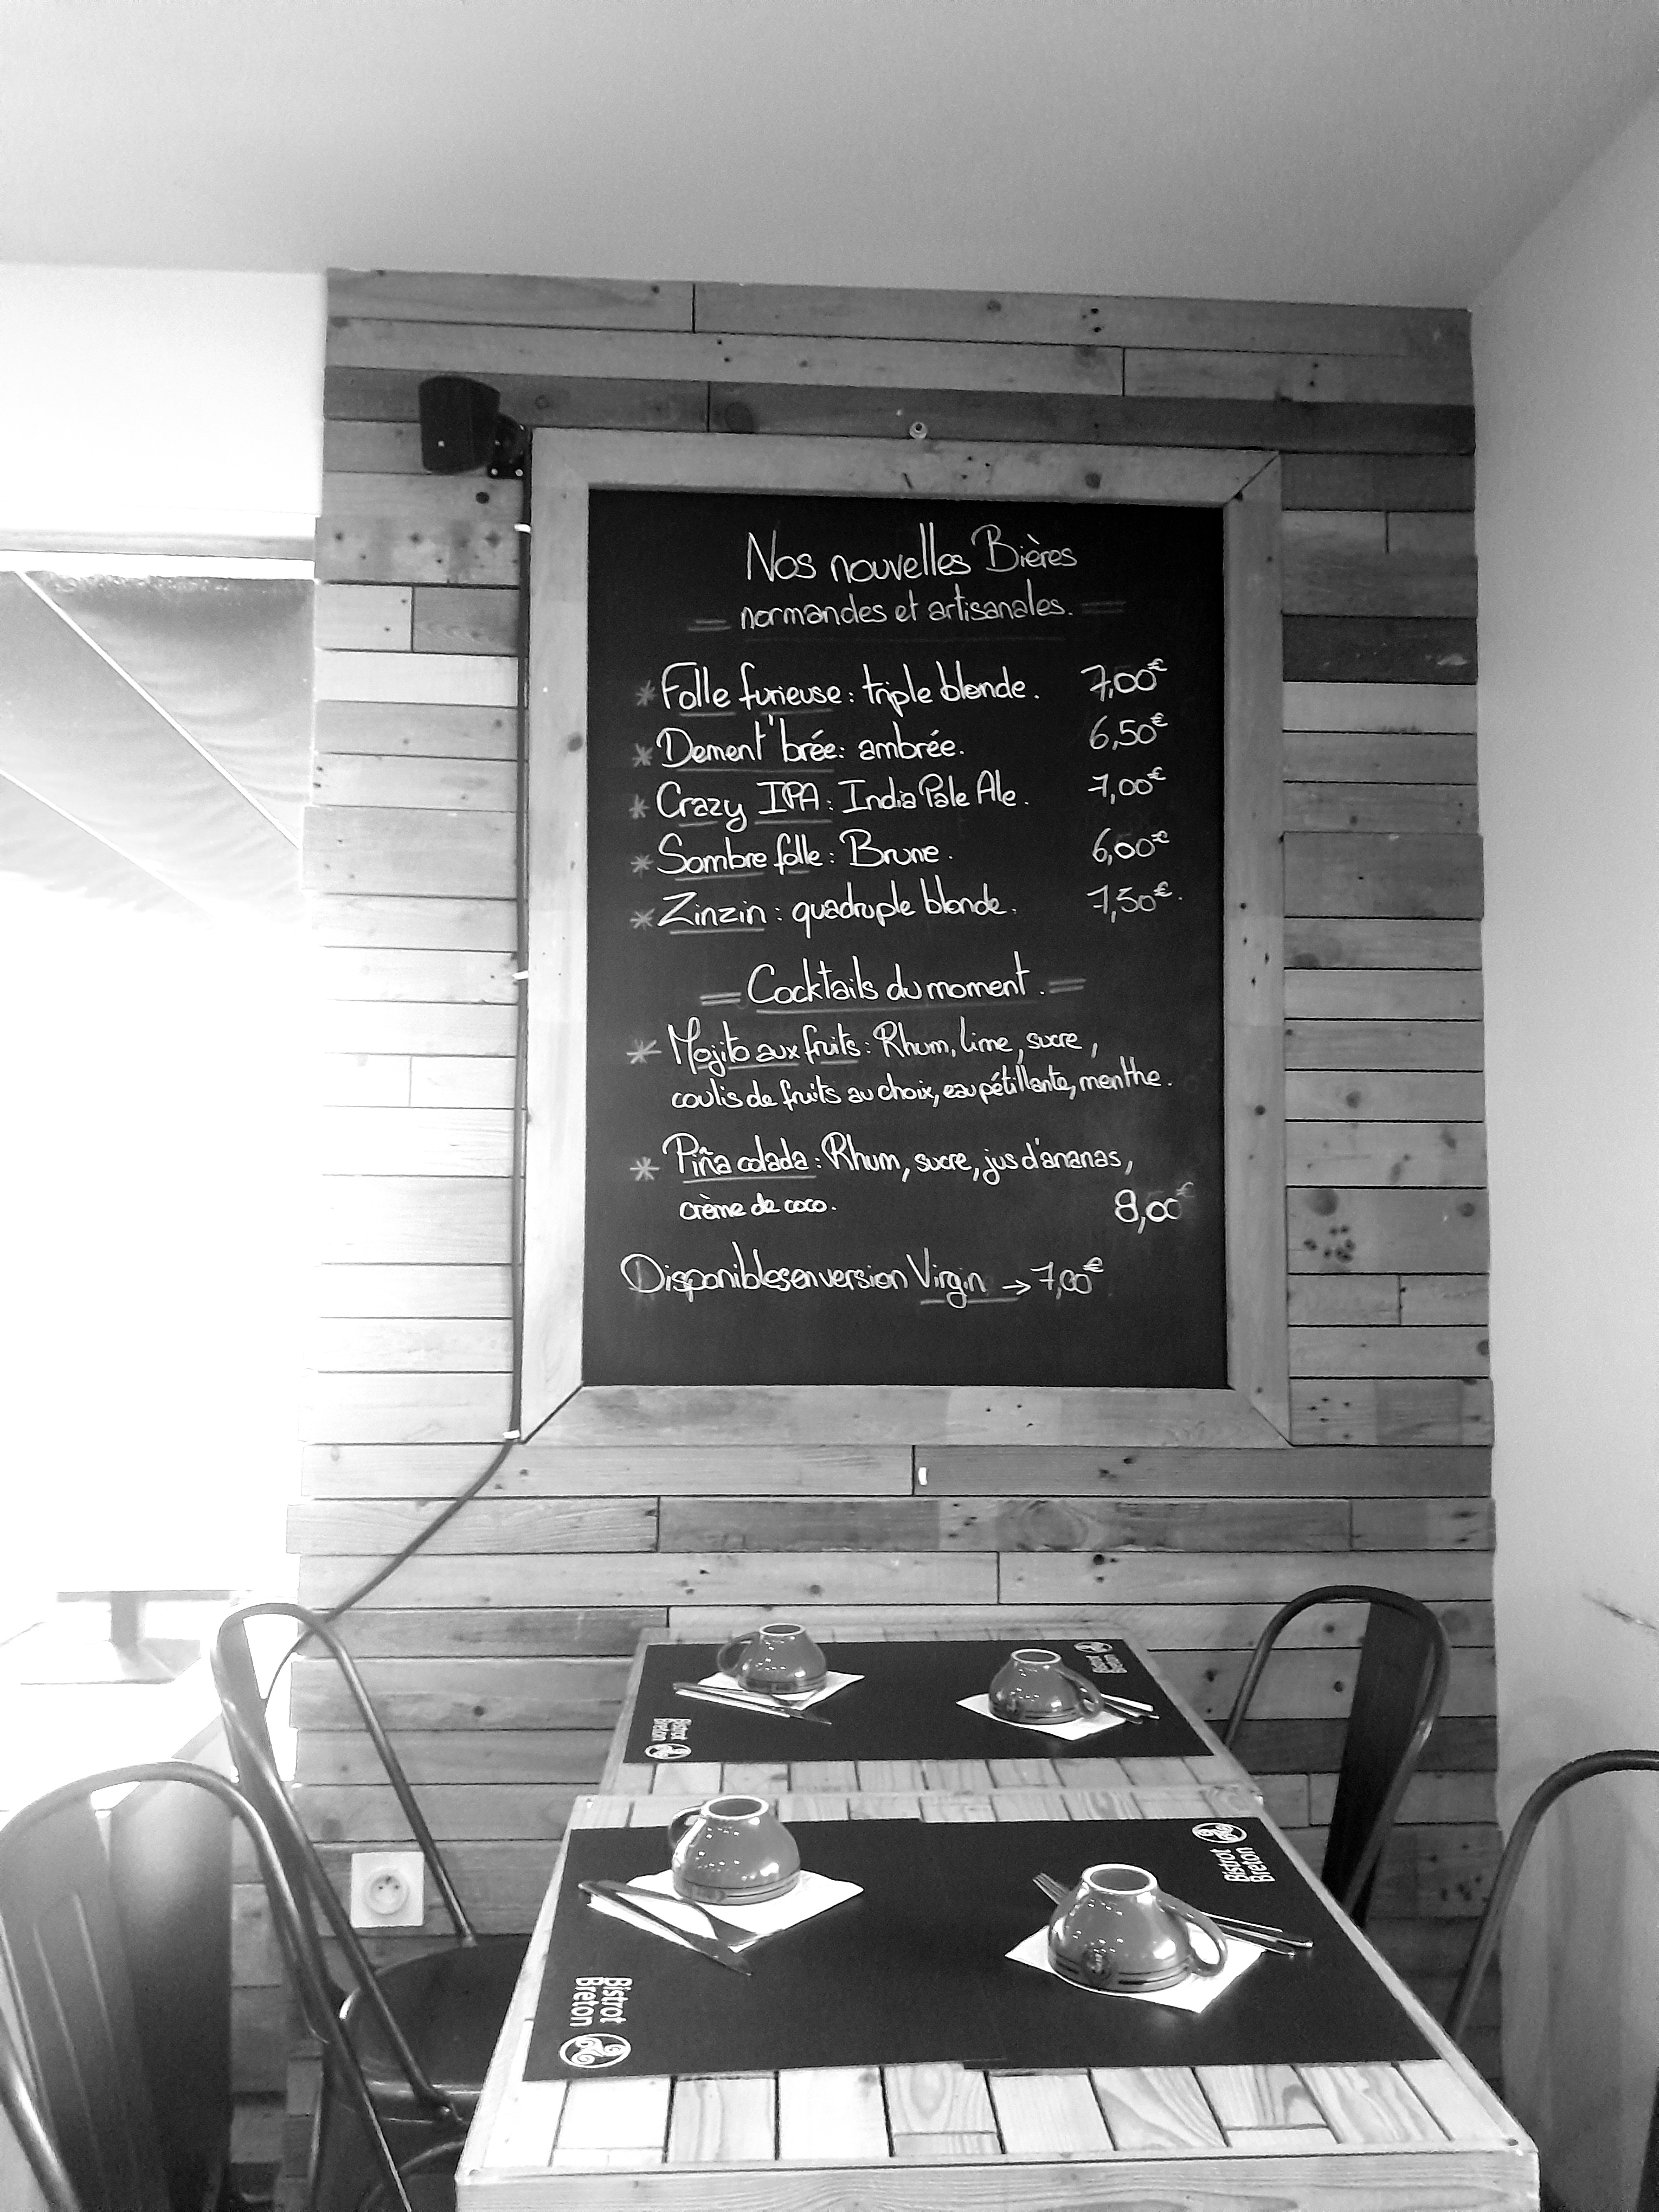 Nos nouvelles Bières
normandes et artisanales.
* Folle furieuse : triple blonde. 7,00€
* Dement'brée : ambrée. 6,50€
* Crazy IPA : India Pale Ale. 7,00€
* Sombre folle : Brune. 6,00€
* Zinzin : quadruple blonde. 7,50€.
= Cocktails du moment. =
* Mojito aux fruits : Rhum, lime, sucre,
coulis de fruits au choix, eau pétillante, menthe.
* Piña colada : Rhum, sucre, jus d'ananas,
crème de coco. 8,00€
Disponibles en version Virgin → 7,00€
Bistrot
Breton
Bistrot
Breton
Bistrot
Breton
Bistrot
Breton